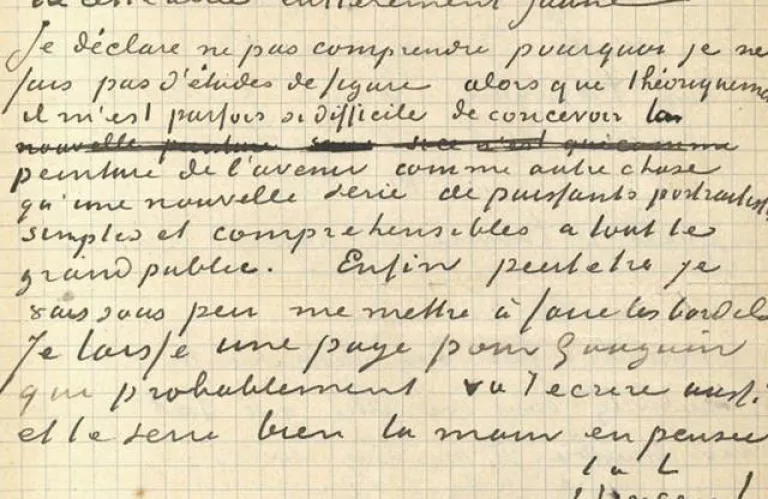 entièrement jaune
Je déclare ne pas comprendre pourquoi je ne
fais pas d'études de figure alors que théoriquement
il m'est parfois si difficile de concevoir la
nouvelle peinture sinon si ce n'est que comme
peinture de l'avenir comme autre chose
qu'une nouvelle serie de puissants portraitistes
simples et comprehensibles a tout le
grand public. Enfin peutetre je
vais sous peu me mettre à faire les bordels
Je laisse une page pour Gauguin
qui probablement va t'ecrire aussi
et te serre bien la main en pensée
t à t